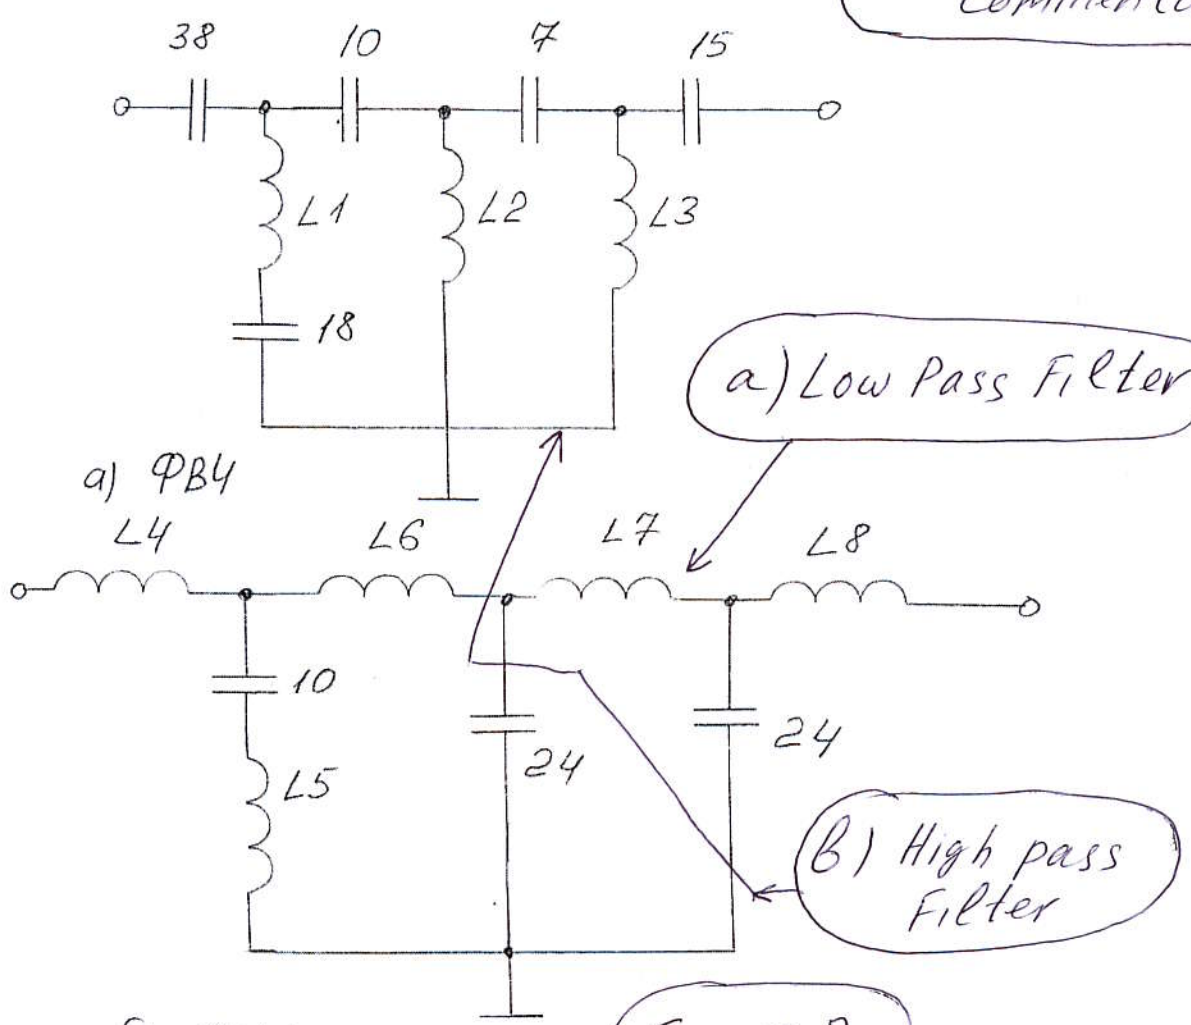 38 10 7 15
L1 L2 L3
18
a) Low Pass Filter
а) ФВЧ
L4 L6 L7 L8
10
24 24
L5
b) High pass
Filter